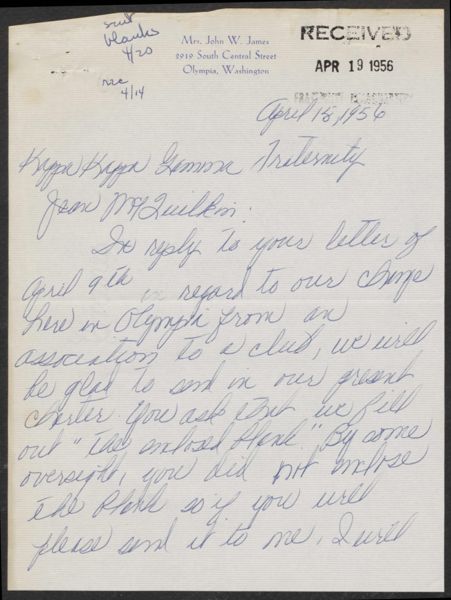 sent
blanks
4/20
rec
4/14
Mrs. John W. James
2919 South Central Street
Olympia, Washington
RECEIVED
APR 19 1956
April 15, 1956
Kappa Kappa Gamma Fraternity
Jean McQuilkin:
In reply to your letter of
April 9th in regard to our change
here in Olympia from an
association to a club, we will
be glad to send in our present
charter. You ask that we fill
out "the enclosed blank." By some
oversight, you did not enclose
the blank so if you will
please send it to me, I will